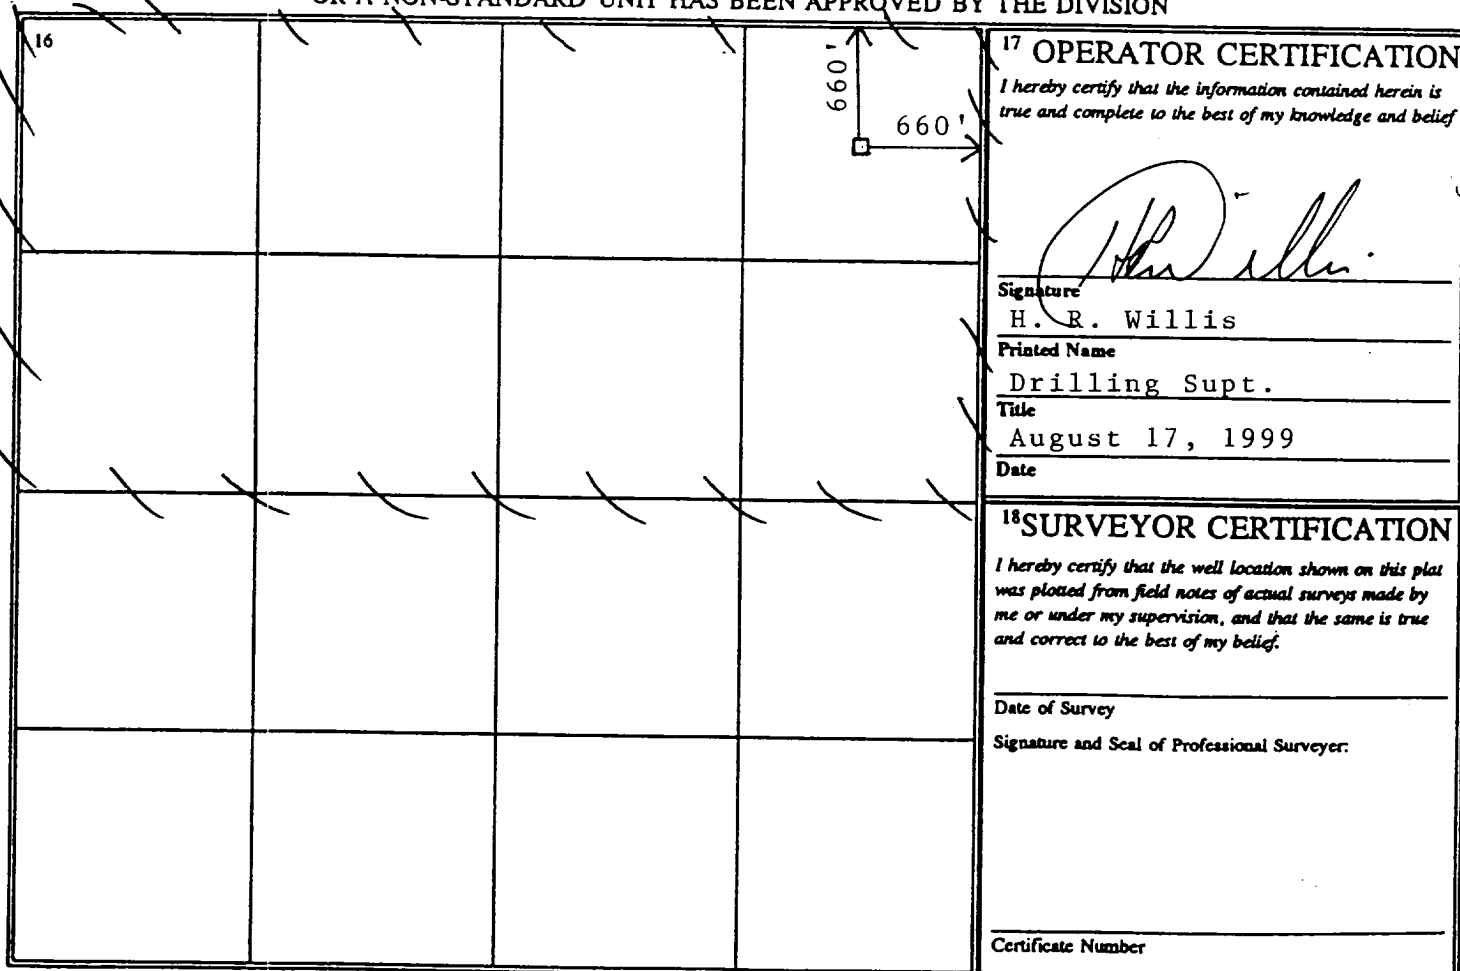 OR A NON-STANDARD UNIT HAS BEEN APPROVED BY THE DIVISION
16
660'
660'
17 OPERATOR CERTIFICATION
I hereby certify that the information contained herein is
true and complete to the best of my knowledge and belief
Signature
H. R. Willis
Printed Name
Drilling Supt.
Title
August 17, 1999
Date
18 SURVEYOR CERTIFICATION
I hereby certify that the well location shown on this plat
was plotted from field notes of actual surveys made by
me or under my supervision, and that the same is true
and correct to the best of my belief.
Date of Survey
Signature and Seal of Professional Surveyer:
Certificate Number